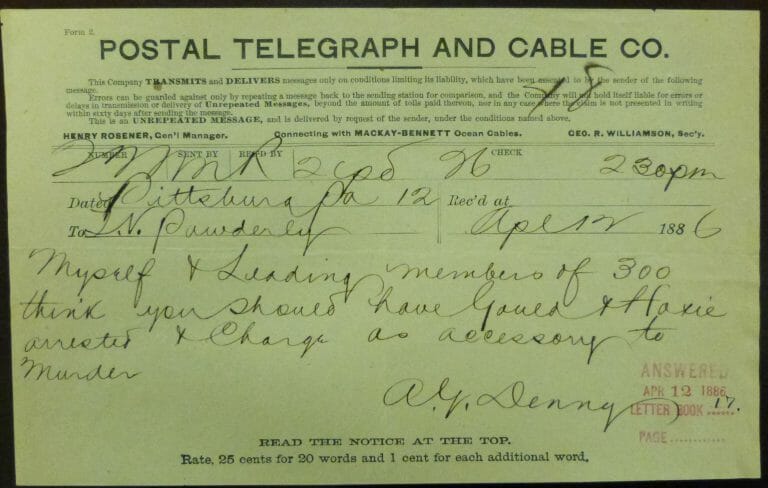 Form 2.
POSTAL TELEGRAPH AND CABLE CO.
This Company TRANSMITS and DELIVERS messages only on conditions limiting its liability, which have been assented to by the sender of the following
message.
Errors can be guarded against only by repeating a message back to the sending station for comparison, and the Company will not hold itself liable for errors or
delays in transmission or delivery of Unrepeated Messages, beyond the amount of tolls paid thereon, nor in any case where the claim is not presented in writing
within sixty days after sending the message.
This is an UNREPEATED MESSAGE, and is delivered by request of the sender, under the conditions named above.
HENRY ROSENER, Gen'l Manager. Connecting with MACKAY-BENNETT Ocean Cables. GEO. R. WILLIAMSON, Sec'y.
NUMBER SENT BY REC'D BY CHECK
26 230pm
Dated Pittsburg Pa 12 Rec'd at
To T.V. Powderly Apl 12 1886
Myself & Leading members of 300
think you should have Gould & Hoxie
arrested & Charge as accessory to
Murder
A.G. Denny
ANSWERED
APR 12 1886
LETTER BOOK 17.
PAGE
READ THE NOTICE AT THE TOP.
Rate, 25 cents for 20 words and 1 cent for each additional word.